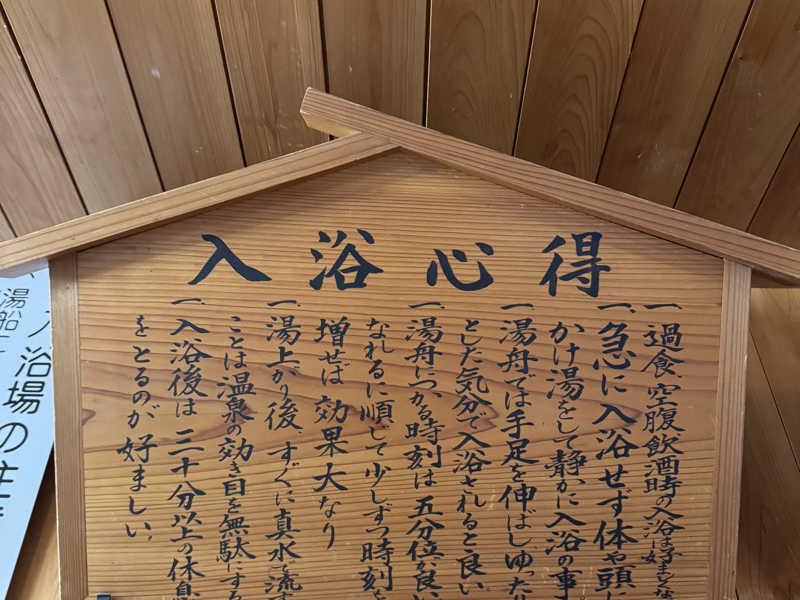 入浴心得
一、過食、空腹飲酒時の入浴は好ましくな
一、急に入浴せず体や頭に
かけ湯をして静かに入浴の事
一、湯舟では手足を伸ばしゆったり
とした気分で入浴されると良い
一、湯舟につかる時刻は五分位が良い
なれるに順じて少しずつ時刻を
増せば効果大なり
一、湯上がり後、すぐに真水で流す
ことは温泉の効き目を無駄にする
一、入浴後は三十分以上の休息
をとるのが好ましい、
入浴場の注
湯船